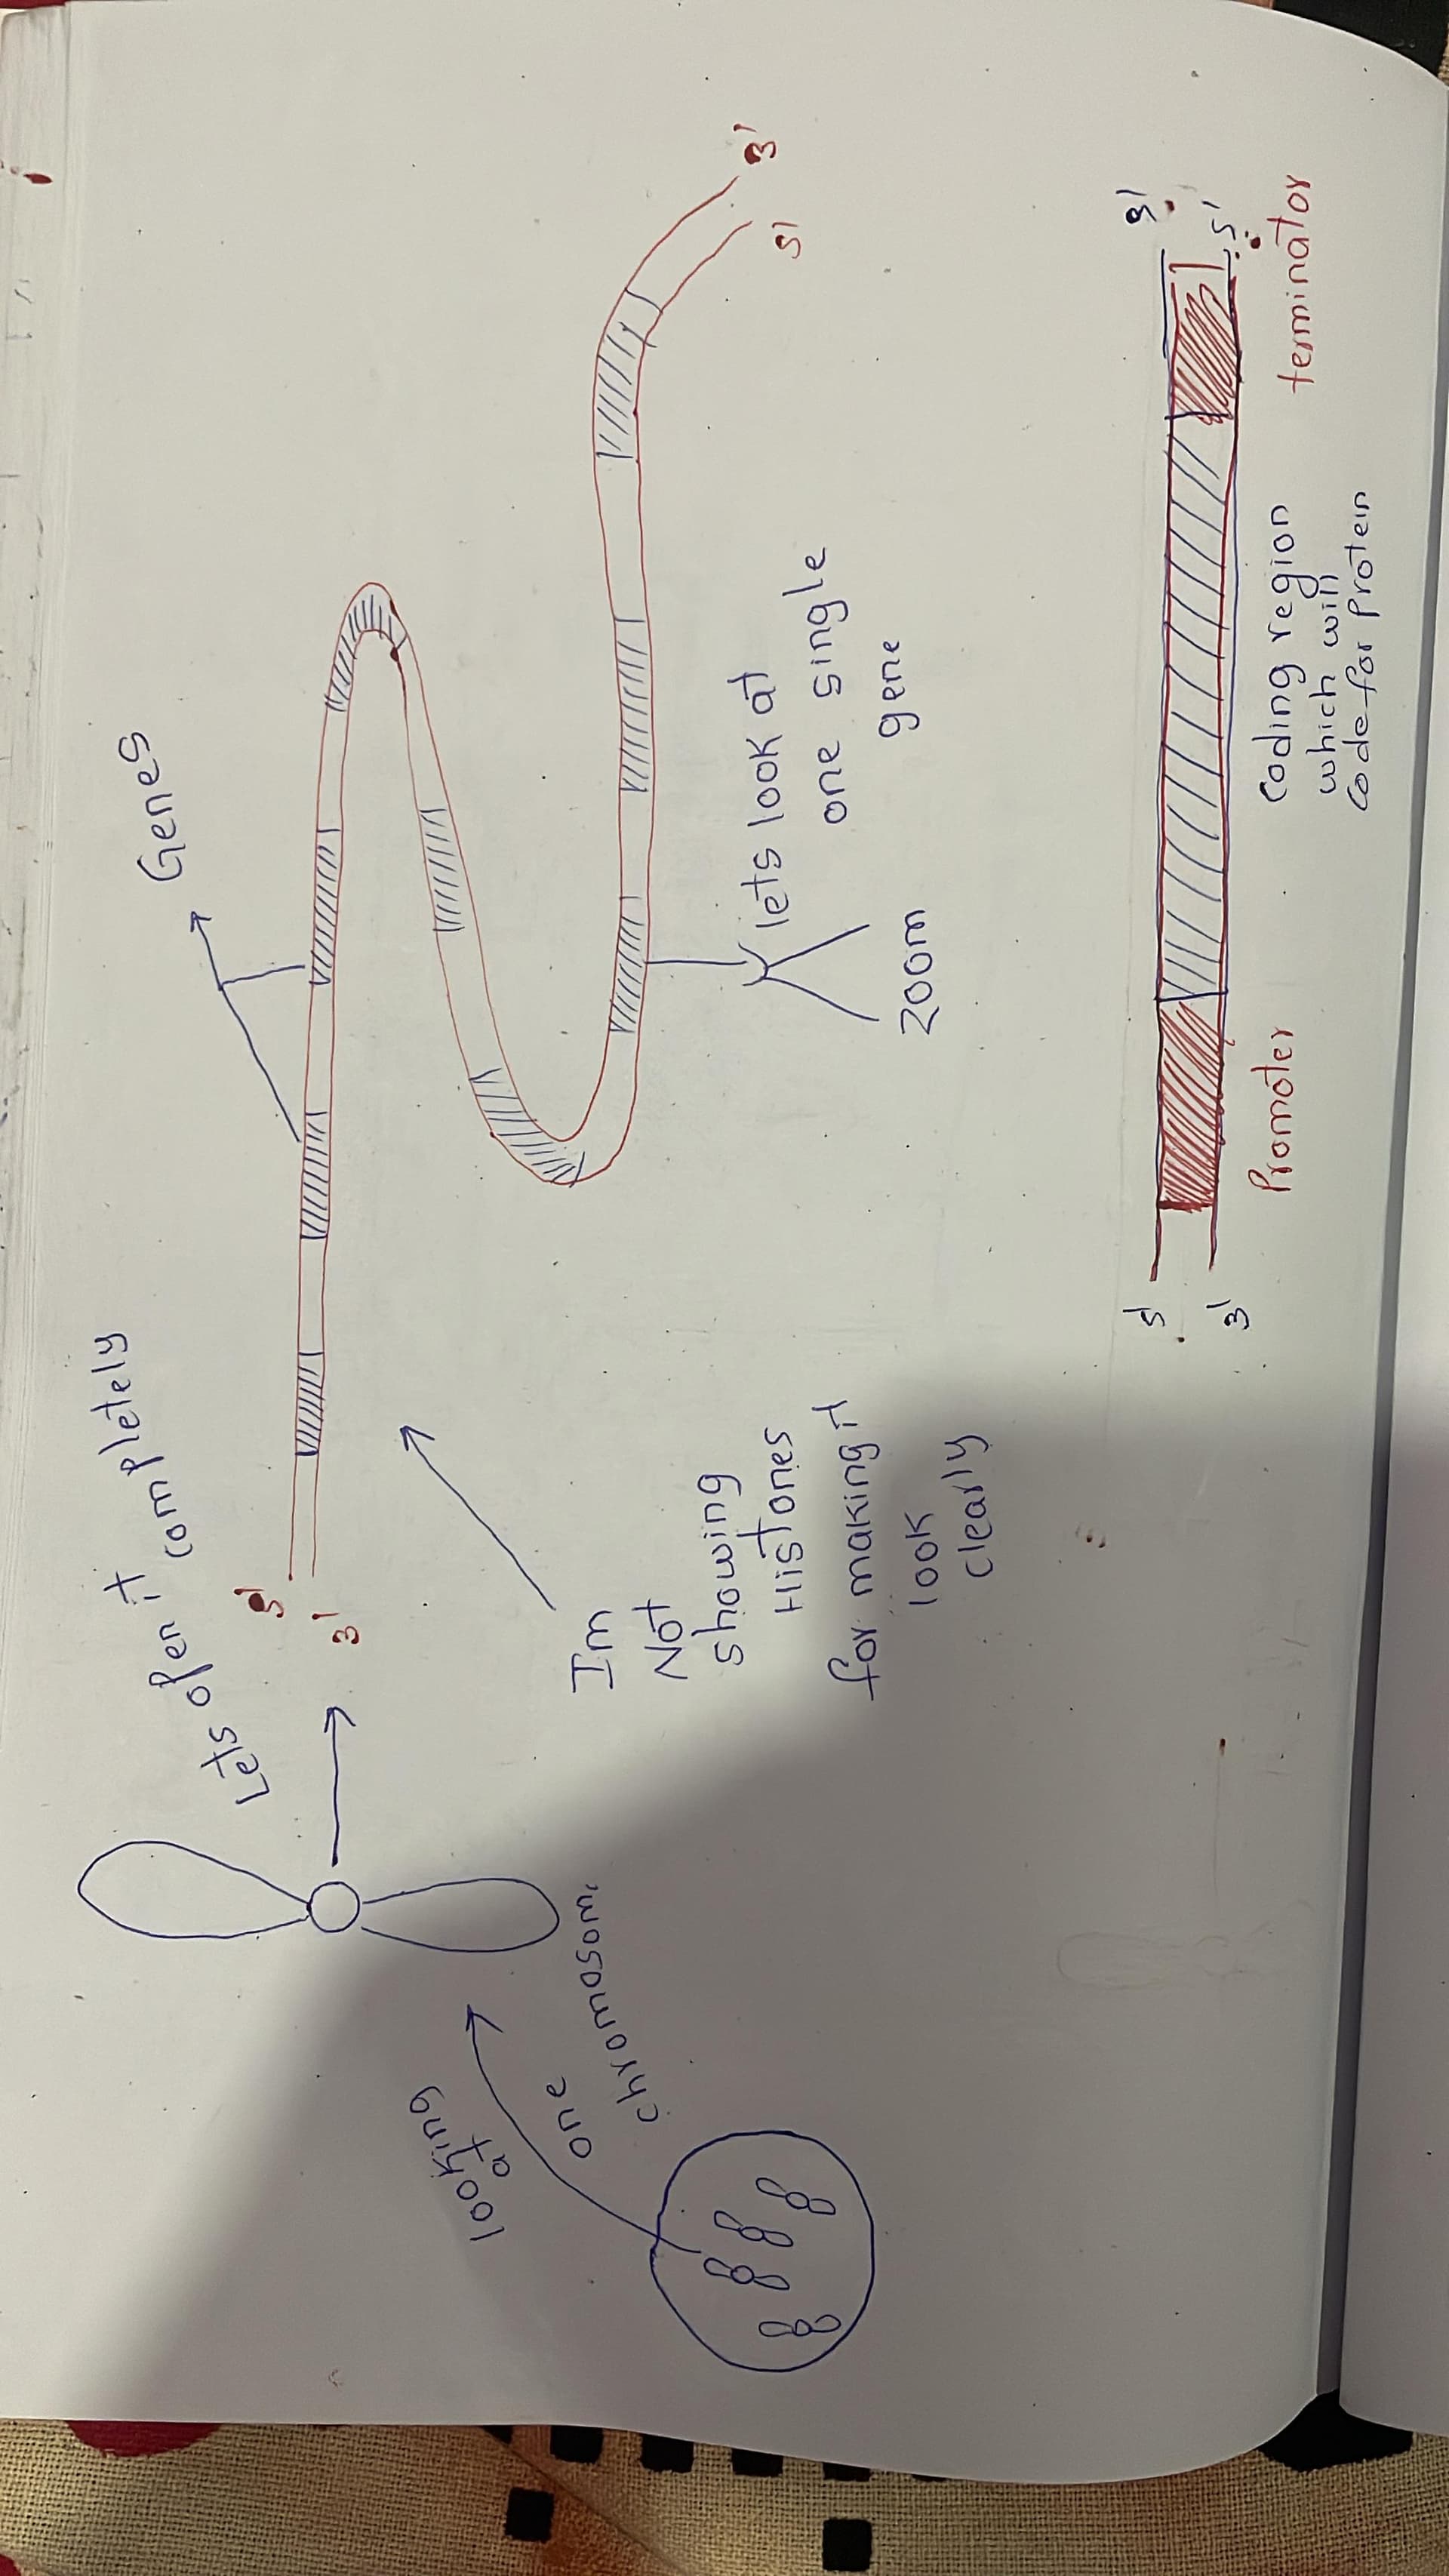 Lets open it
completely
Genes
5'
3'
3'
5'
looking
at
one
chromosom
Im
Not
showing
Histones
for making it
look
clearly
lets look at
one single
gene
zoom
5'
3'
3'
5'
Promoter
Coding region
which will
code for Protein
terminator